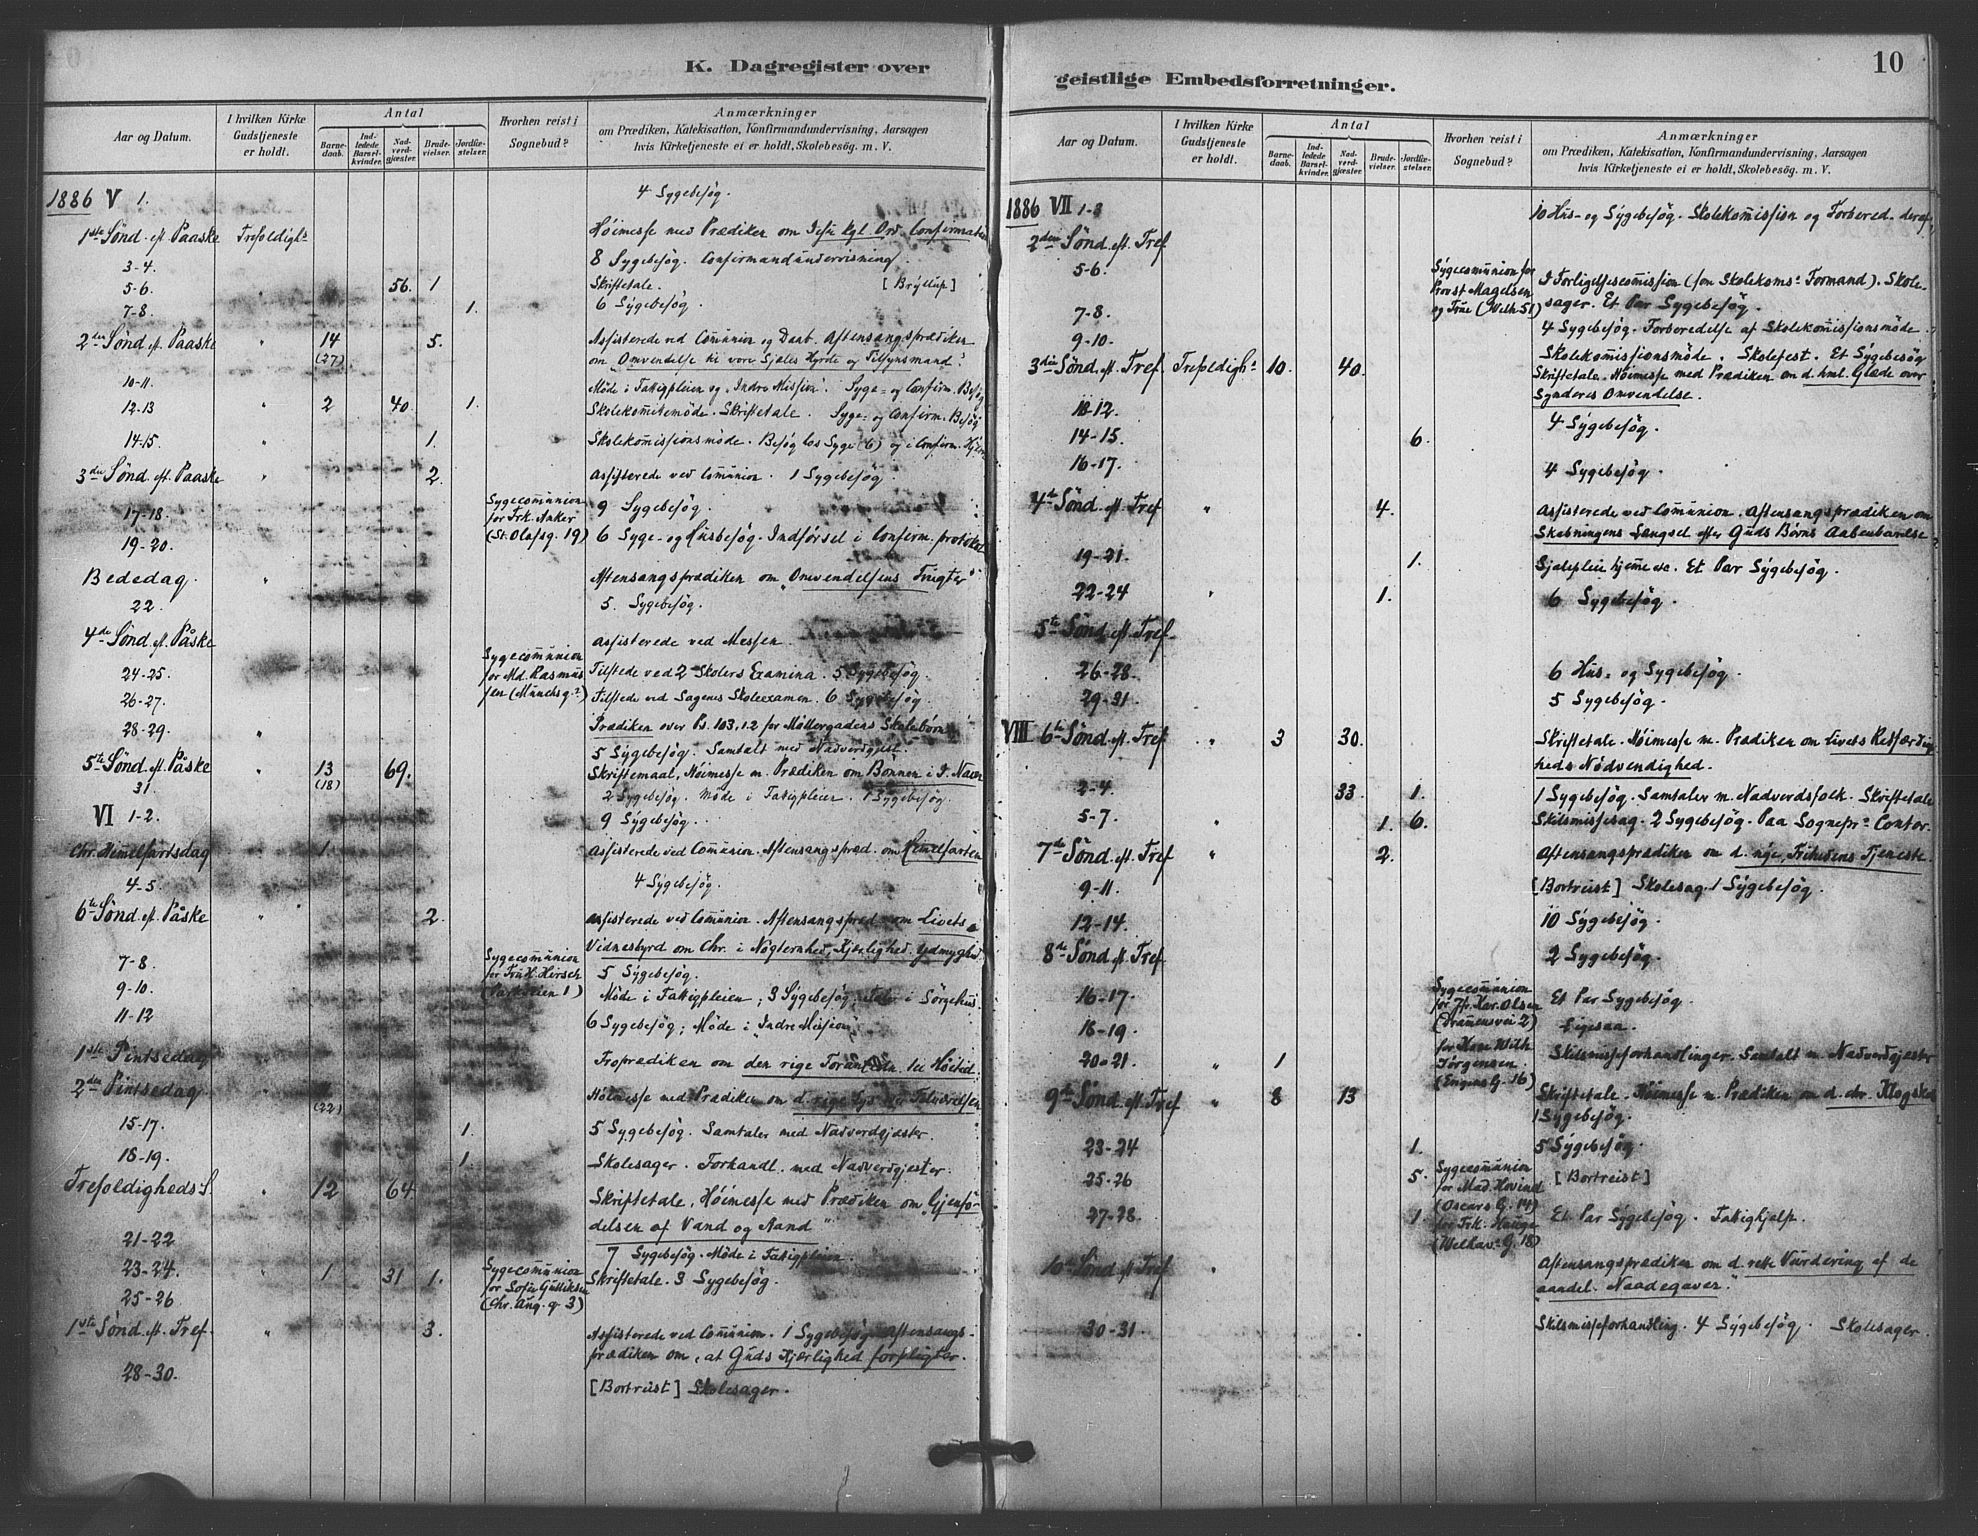 K. Dagregister over
Aar og Datum.
I hvilken Kirke Gudstjeneste er holdt.
Antal
Barnedaab.
Indledede Barselkvinder.
Nadverdgjæster.
Brudevielser.
Jordfæstelser.
Hvorhen reist i Sognebud?
Anmærkninger
om Prædiken, Katekisation, Konfirmandundervisning, Aarsagen
hvis Kirketjeneste ei er holdt, Skolebesøg. m. V.
1886 V 1. 4 Sygebesøg.
1ste Sønd. eft. Paaske Trefoldigh. Høimesse med Prædiken om Jesu kgl. Ord. Confirmation
3-4. 8 Sygebesøg. Confirmandundervisning.
5-6. " 56. 1 Skriftetale. [Bryllup]
7-8. 1. 6 Sygebesøg.
2den Sønd. eft. Paaske " 14 (27) 5. Assisterede ved Communion og Daab. Aftensangsprædiken
om "Omvendelse til vore Sjæles Hyrde og Tilsynsmand."
10-11. Møde i Fattigpleien og "Indre Mission". Syge- og Confirm. Besøg
12-13 " 2 40. 1. Skolekomitemøde. Skriftetale. Syge- og Confirm. Besøg
14-15. " 1. Skolekommissionsmøde. Besøg hos Syge (6) og i Confirm.
3die Sønd. eft. Paaske " 2. Assisterede ved Communion. 1 Sygebesøg.
17-18. Sygecommunion for Frk. Anker (St. Olafsg. 19) 9 Sygebesøg.
19-20. 6 Syge- og Husbesøg. Indførsel i Confirm. protokol
Bededag. " Aftensangsprædiken om "Omvendelsens Frugter"
22. 5. Sygebesøg.
4de Sønd. eft. Påske Assisterede ved Messen.
24-25. Sygecommunion for Md. Rasmussen (Munchsg.) Tilstede ved 2 Skolers Examina. 5 Sygebesøg.
26-27. Tilstede ved Sagenes Skoleexamen. 6 Sygebesøg.
28-29. " Prædiken over Ps. 103,1.2 for Møllergadens Skolebørn
5 Sygebesøg. Samtalt med Nadverdgjæste.
5te Sønd. eft. Påske " 13 (18) 69. Skriftemaal, Høimesse m. Prædiken om Bønnen i J. Navn
31. 2 Sygebesøg. Møde i Fattigpleien. 1 Sygebesøg.
VI 1-2. 9 Sygebesøg.
Chr. Himmelfartsdag 1 Assisterede ved Communion. Aftensangspræd. om Himlfarten
4-5. 4 Sygebesøg.
6te Sønd. eft. Påske " 2. Assisterede ved Communion. Aftensangspræd. om Livets
Vidnesbyrd om Chr. i Nøgternhed, Kjærlighed, Ydmyghed
7-8. Sygecommunion for Fru H. Hirsch (Parkveien 1) 5 Sygebesøg.
9-10. Møde i Fattigpleien; 3 Sygebesøg; Tale i Sørgehus.
11-12 6 Sygebesøg; Møde i "Indre Mission".
1ste Pintsedag " Froprædiken om den rige Foranledn. til Høitid.
2den Pintsedag " (22) Høimesse med Prædiken om d. rige
15-17. 1. 5 Sygebesøg. Samtaler med Nadverdgjæster.
18-19. 1. Skolesager. Forhandl. med Nadverdgjester.
Trefoldigheds S. " 12 64 Skriftetale, Høimesse med Prædiken om "Gjenfødelsen
af Vand og Aand"
21-22 7 Sygebesøg. Møde i Fattigpleien.
23-24. " 1 31 1. Sygecommunion for Sofie Gulliksen (Chr. Aug. g. 3) Skriftetale. 3 Sygebesøg.
25-26
1ste Sønd. eft. Tref. " 3. Assisterede ved Communion. 1 Sygebesøg. Aftensangs-
prædiken om, at Guds Kjærlighed forpligter.
28-30. [Bortreist] Skolesager.
geistlige Embedsforretninger.
10
Aar og Datum.
I hvilken Kirke Gudstjeneste er holdt.
Antal
Barnedaab.
Indledede Barselkvinder.
Nadverdgjæster.
Brudevielser.
Jordfæstelser.
Hvorhen reist i Sognebud?
Anmærkninger
om Prædiken, Katekisation, Konfirmandundervisning, Aarsagen
hvis Kirketjeneste ei er holdt, Skolebesøg. m. V.
1886 VII 1-3 10 Hus- og Sygebesøg. Skolekommission og Forbered. deraf
2den Sønd. eft. Tref
5-6. Sygecommunion for Provst Magelssen og Frue (Welh. 51) I Forligelsescommission (som Skolekoms. Formand). Skole-
sager. Et Par Sygebesøg.
7-8. 4 Sygebesøg. Forberedelse af Skolekommissionsmøde.
9-10. Skolekommissionsmøde. Skolefest. Et Sygebesøg
3die Sønd. eft. Tref. Trefoldigh. 10. 40. Skriftetale. Høimesse med Prædiken om d. hml. Glæde over
Synderes Omvendelse.
10-12. 4 Sygebesøg.
14-15. 6.
16-17. 4 Sygebesøg.
4de Sønd. eft. Tref " 4. Assisterede ved Communion. Aftensangsprædiken om
Skabningens Længsel efter Guds Børns Aabenbarelse
19-21. 1. Sjælepleie hjemme etc. Et Par Sygebesøg.
22-24 " 1. 6 Sygebesøg.
5te Sønd. eft. Tref.
26-28. 6 Hus- og Sygebesøg.
29-31. 5 Sygebesøg.
VIII 6te Sønd. eft. Tref " 3 30. Skriftetale. Høimesse m. Prædiken om Livets Retfærdig-
heds Nødvendighed.
2-4. 33. 1. 1 Sygebesøg. Samtaler m. Nadverdsfolk. Skriftetale
5-7. " 1. 6. Skilsmissesag. 2 Sygebesøg. Paa Sognepr. Contor.
7de Sønd. eft. Tref " 2. Aftensangsprædiken om d. nye, Frihedens Tjeneste.
9-11. [Bortreist] Skolesag. 1 Sygebesøg.
12-14. 10 Sygebesøg.
8de Sønd. eft. Tref. 2 Sygebesøg.
16-17. Sygecommunion for Jfr. Kar. Olsen (Drammensvei 2) Et Par Sygebesøg.
18-19. Ligesaa.
20-21. " 1 for Hans Wilh. Jørgensen (Eugens G. 16) Skilsmisseforhandlinger. Samtalt m. Nadverdgjester
9de Sønd. eft. Tref " 8 13 Skriftetale. Høimesse m. Prædiken om d. chr. Klogskab
1 Sygebesøg.
23-24 1. 5 Sygebesøg.
25-26 5. Sygecommunion for Mad. Hovind (Oscars G. 14) [Bortreist]
27-28. 1 for Frk. Hauge (Welhav. G. 18) Et Par Sygebesøg. Fattighjelp.
10de Sønd. eft. Tref. " Aftensangsprædiken om d. rette Vurdering af de
aandel. Naadegaver".
30-31. Skilsmisseforhandling. 4 Sygebesøg. Skolesager.